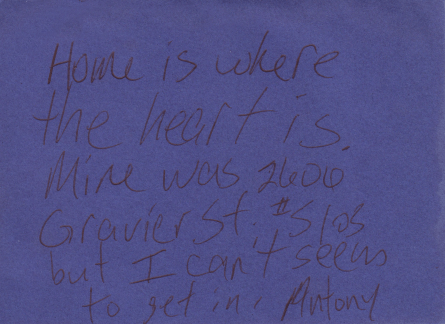 Home is where
the heart is.
Mine was 2600
Gravier St. #S105
but I can't seem
to get in. Antony